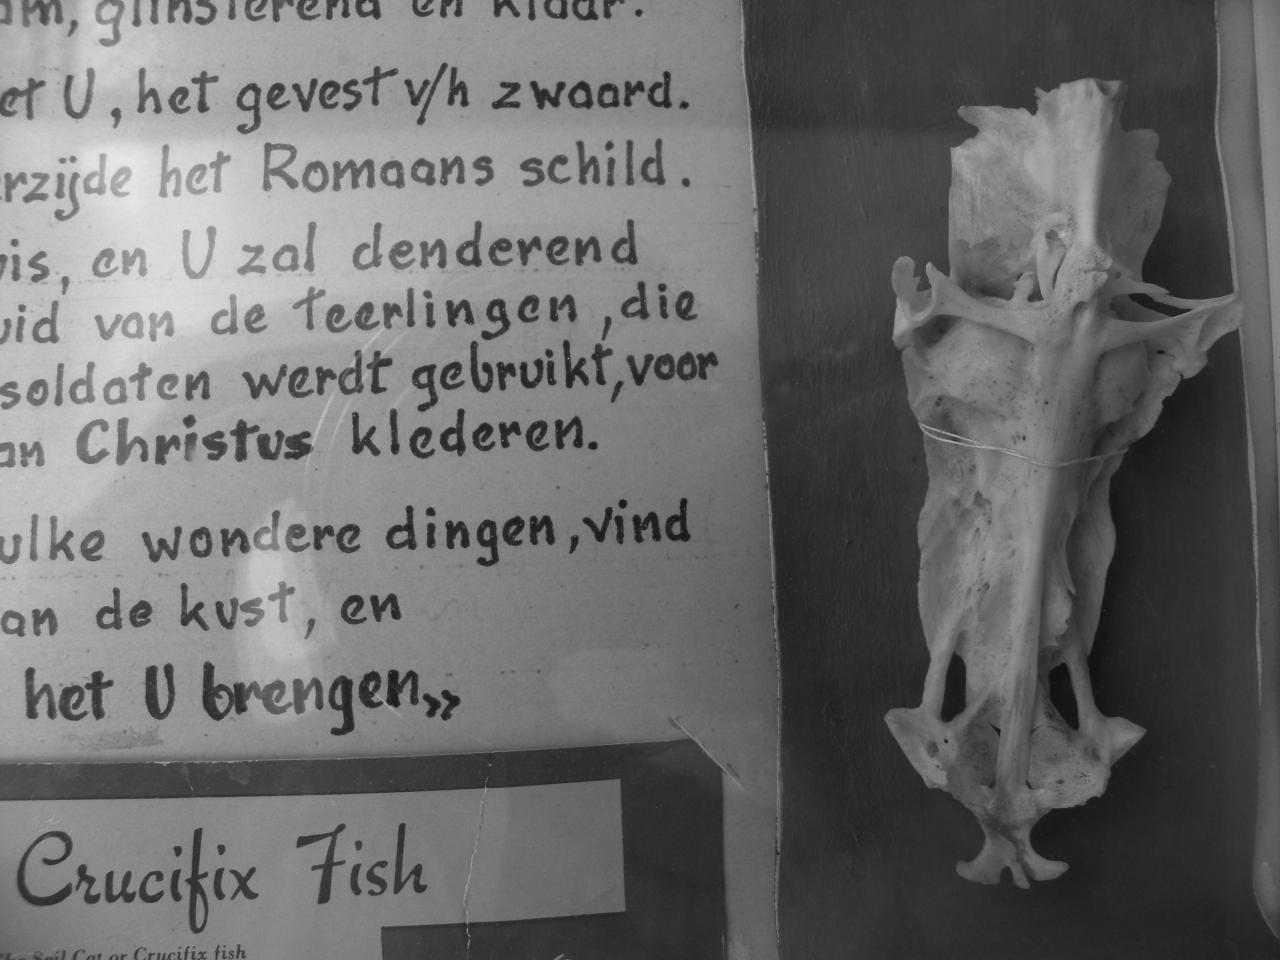 glinsterend en klaar.
et U, het gevest v/h zwaard.
rzijde het Romaans schild.
is, en U zal denderend
uid van de teerlingen, die
soldaten werdt gebruikt, voor
an Christus klederen.
ulke wondere dingen, vind
an de kust, en
het U brengen,,
Crucifix Fish
The Sail Cat or Crucifix fish